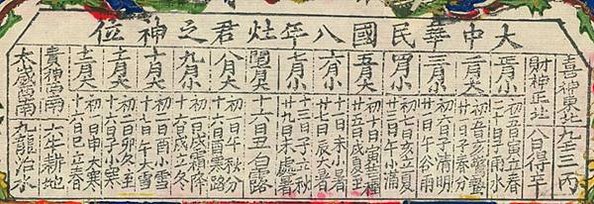 大中華民國八年灶君之神位
喜神東北 三丙
財神正北 八日得辛
正月小 初五日寅立春 二十日子雨水
二月大 初五日亥驚蟄 廿一日子春分
三月小 初六日子清明 廿一日午谷雨
四月小 初七日亥立夏 廿三日午小滿
五月大 初十日寅芒種 廿五日戌夏至
六月小 十一日未小暑 廿七日辰大暑
七月小 十三日子立秋 廿九日未處暑
閏月大 十六日丑白露
八月大 初一日午秋分 十六日酉寒路
九月小 初一日戌霜降 十六日戌立冬
十月大 初二日酉小雪 十七日午大雪
十一月大 初二日卯冬至 十六日子小寒
十二月大 初一日申大寒 十六日巳立春
貴神西南 六牛耕地
太歲西南 九龍治水